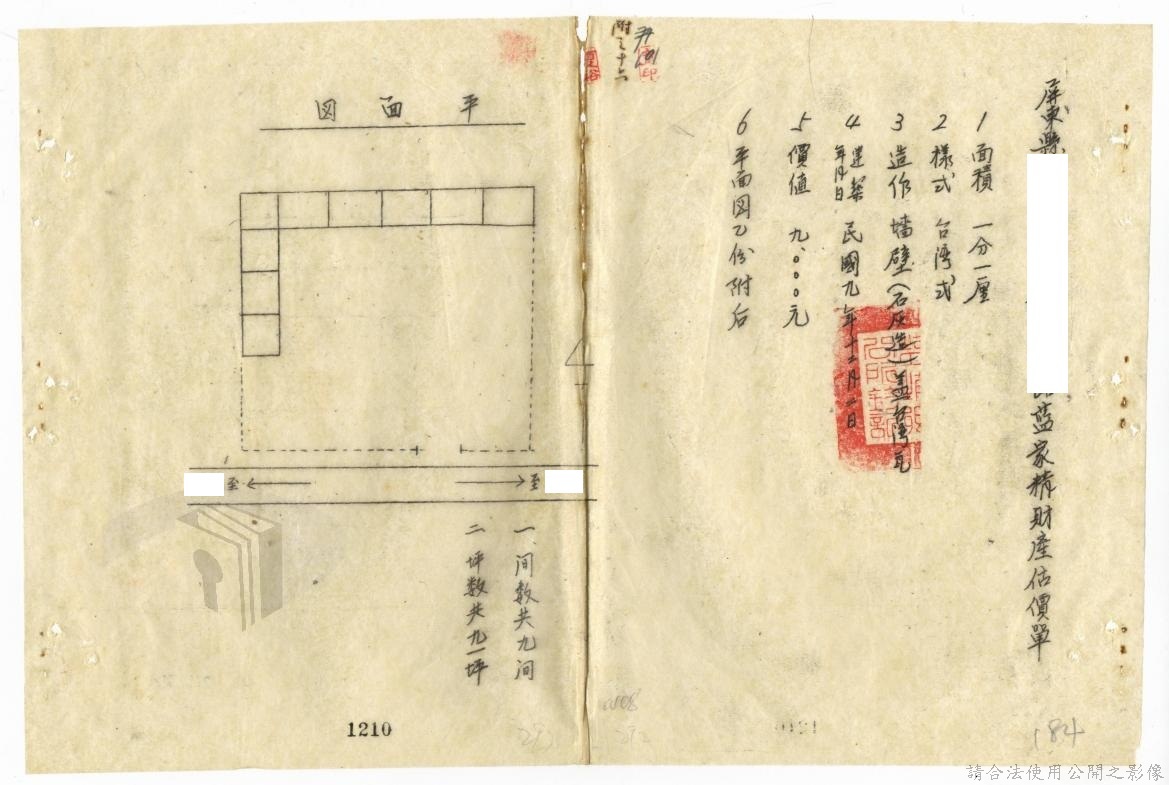 屏東縣
藍家精財產估價單
1 面積 一分一厘
2 樣式 台湾式
3 造作 墻壁(石灰造)盖台湾瓦
4 建築年月日 民國九年十二月一日
5 價値 九、〇〇〇元
6 平面図乙份附后
附之十六
184
平面図
至
至
一、间数共九间
二、坪数共九一坪
1210
請合法使用公開之影像